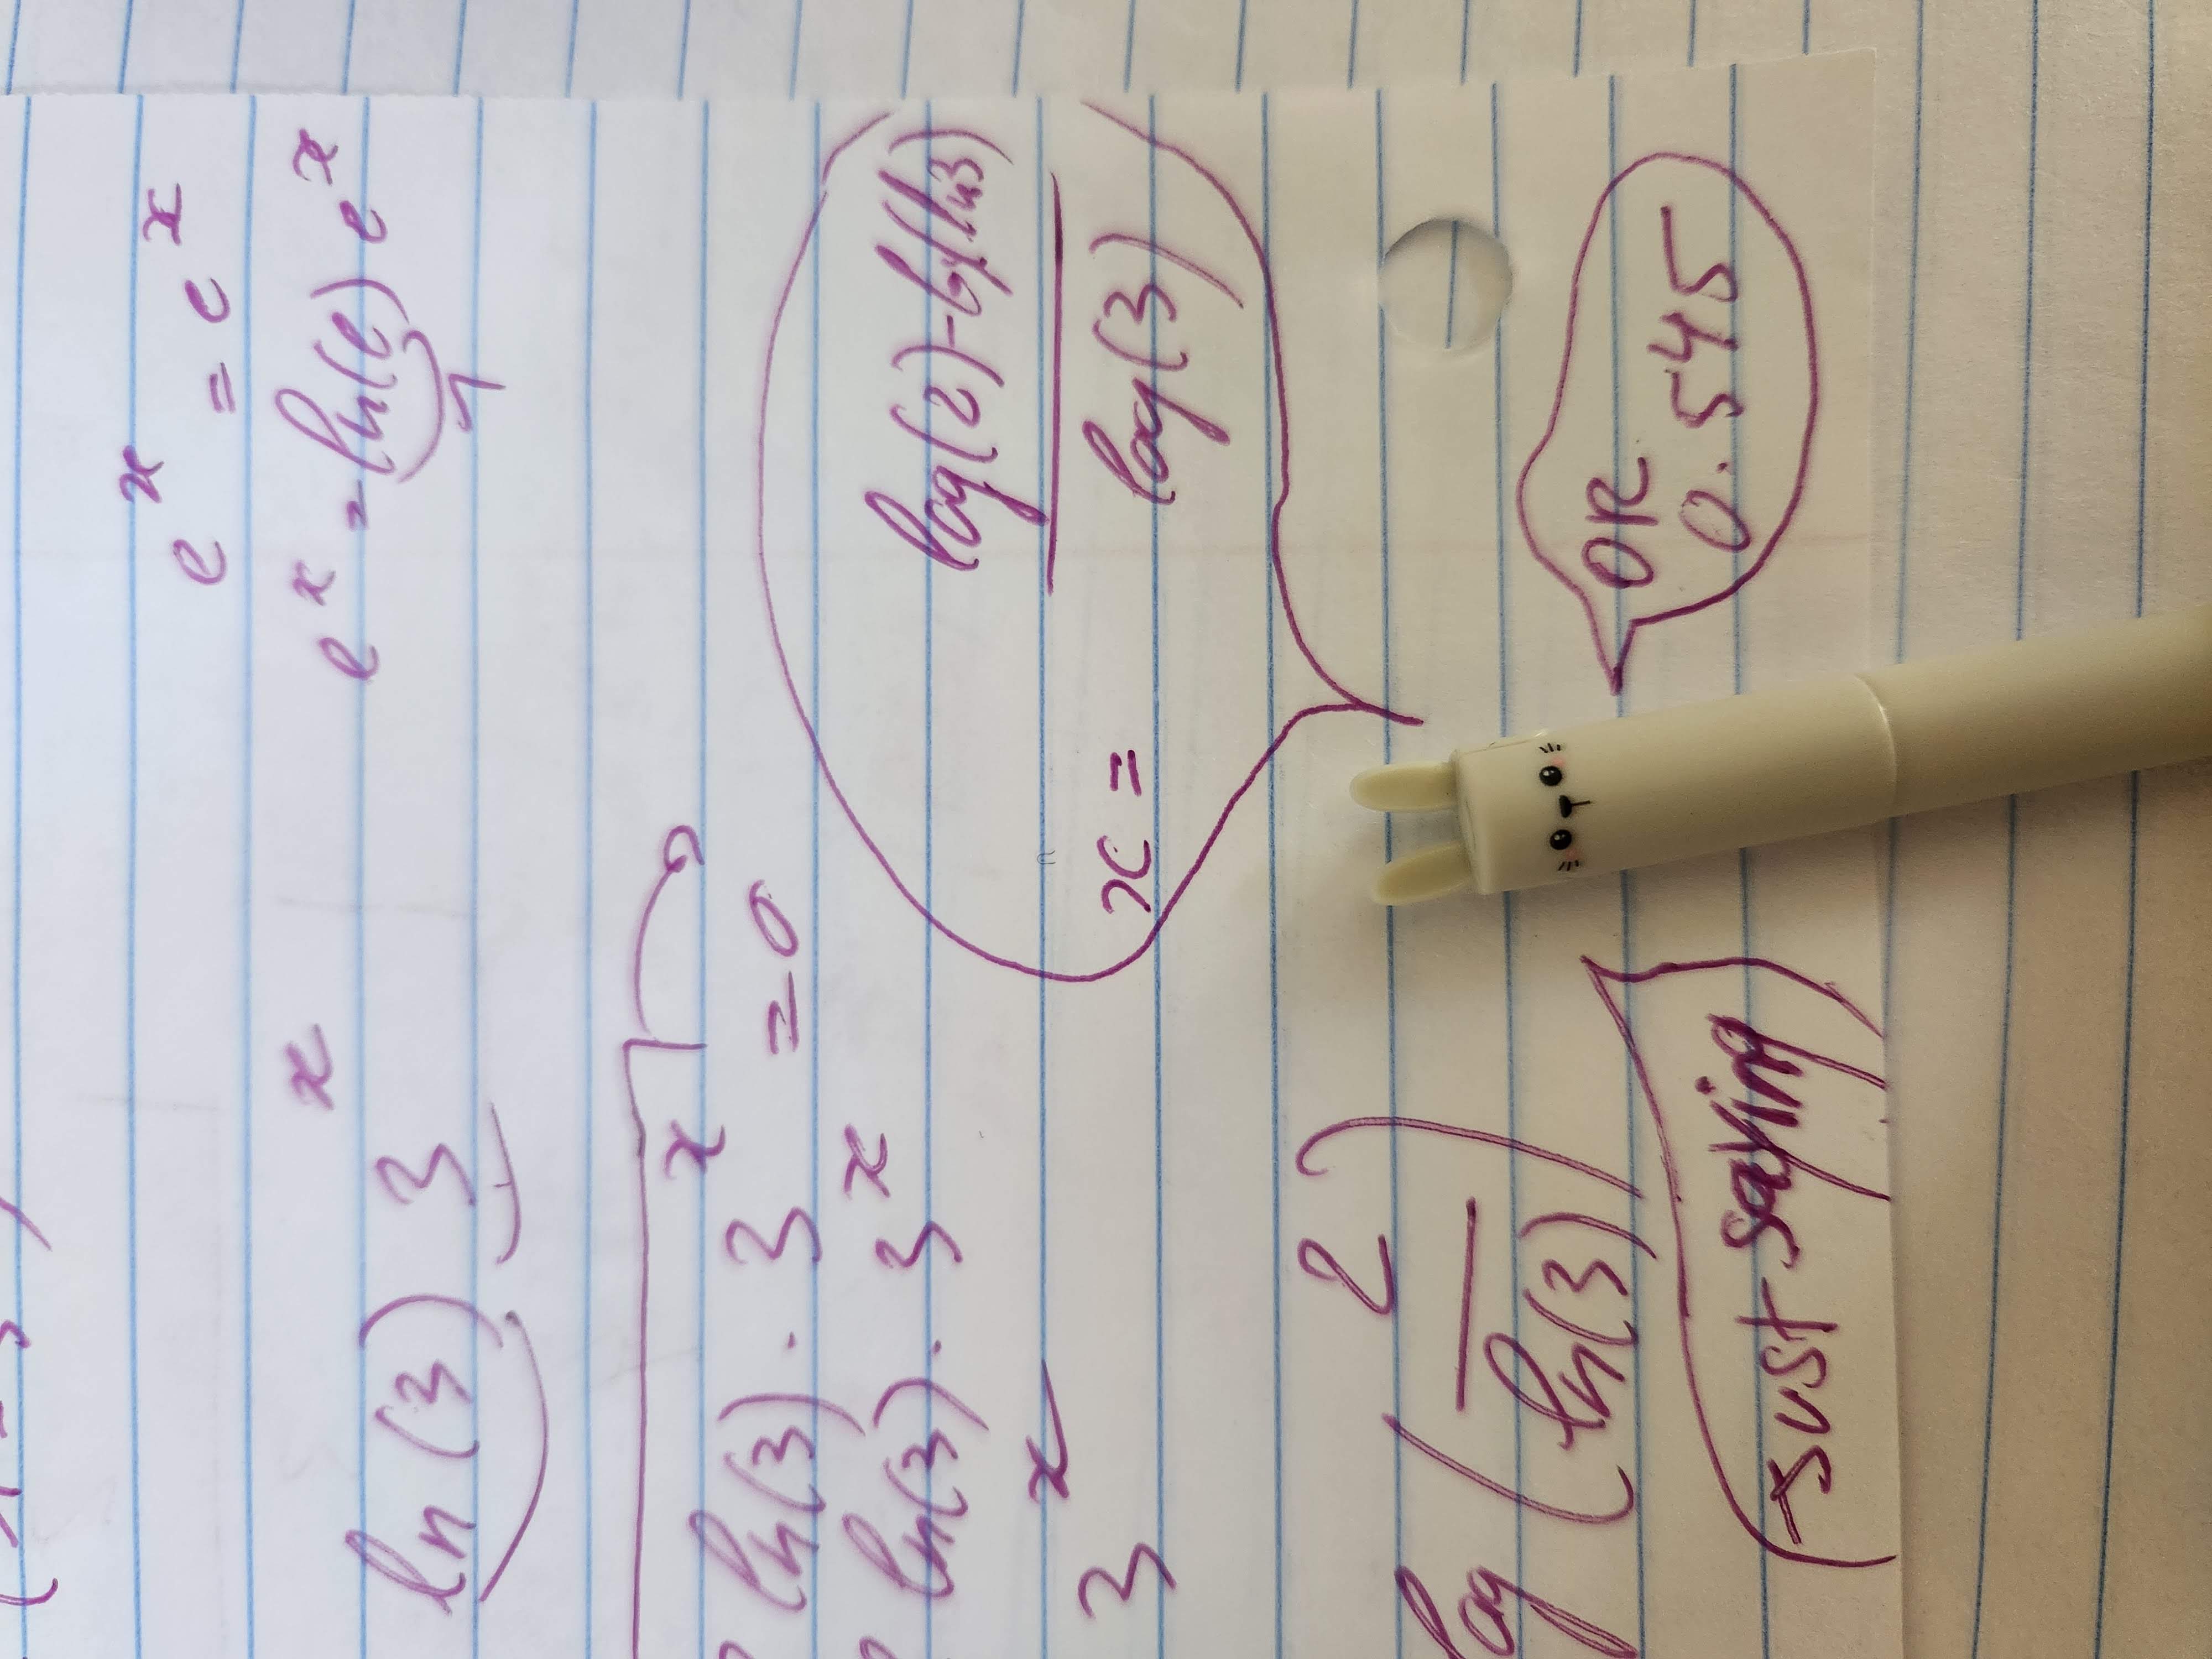 e^x = e^x
e^x = ln(e) e^x
1
ln(3) 3^x
ln(3) · 3^x = 0
ln(3) · 3^x
3^x
x = log(2) - log(ln3) / log(3)
log (2 / ln(3))
Just saying
OR
0.545